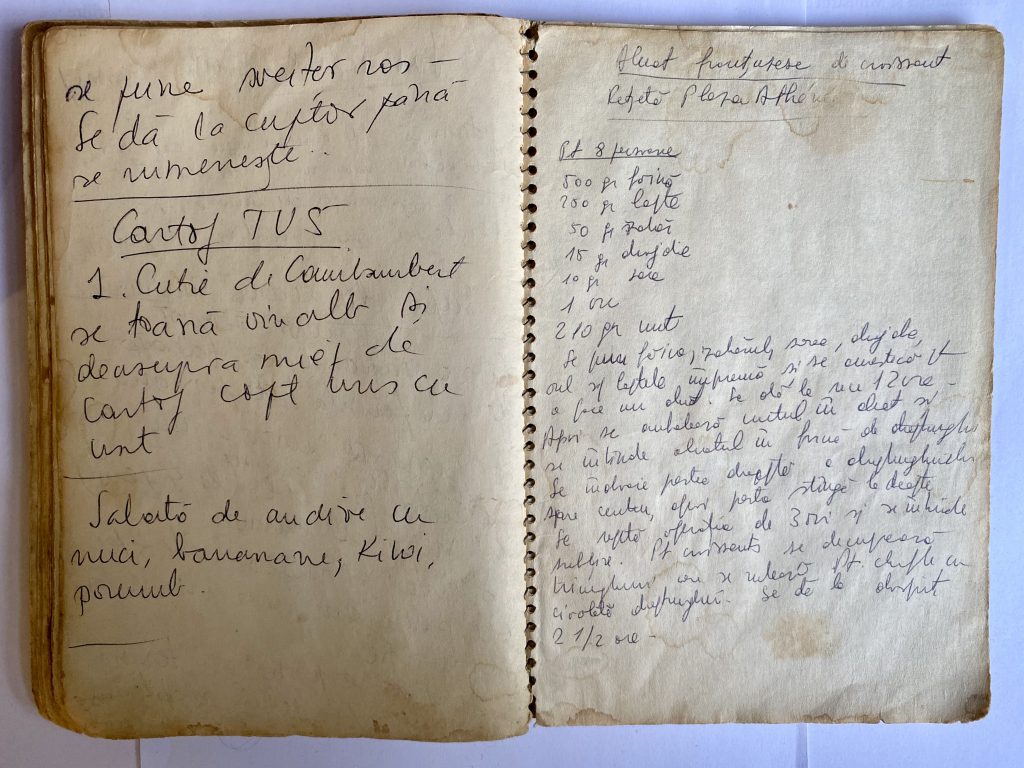 se pune
Se dă la cuptor până
se rumenește..
Cartof TUS
1. Cutie de Camambert
se toarnă vin alb și
deasupra miez de
cartof copt uns cu
unt
Salată de andive cu
nuci, bananane, Kiwi,
porumb.
Aluat franțuzesc de croissant
Rețetă Plaza Athén
Pt 8 persoane
500 gr făină
250 gr lapte
50 gr zahăr
15 gr drojdie
10 gr sare
1 ou
210 gr unt
Se pune făina, zahărul, sarea, drojdia,
oul și laptele împreună și se amestecă pt
a face un aluat. Se dă la rece 12 ore -
Apoi se îmbalează untul în aluat și
se întinde aluatul în formă de dreptunghi
Se îndoaie partea dreaptă a dreptunghiului
spre centru, apoi partea stângă la dreapta
Se repetă operația de 3 ori și se întinde
subțire. Pt croissants se decupează
triunghiuri care se rulează Pt. chifle cu
ciocolată dreptunghi. Se dă la dospit
2 1/2 ore -